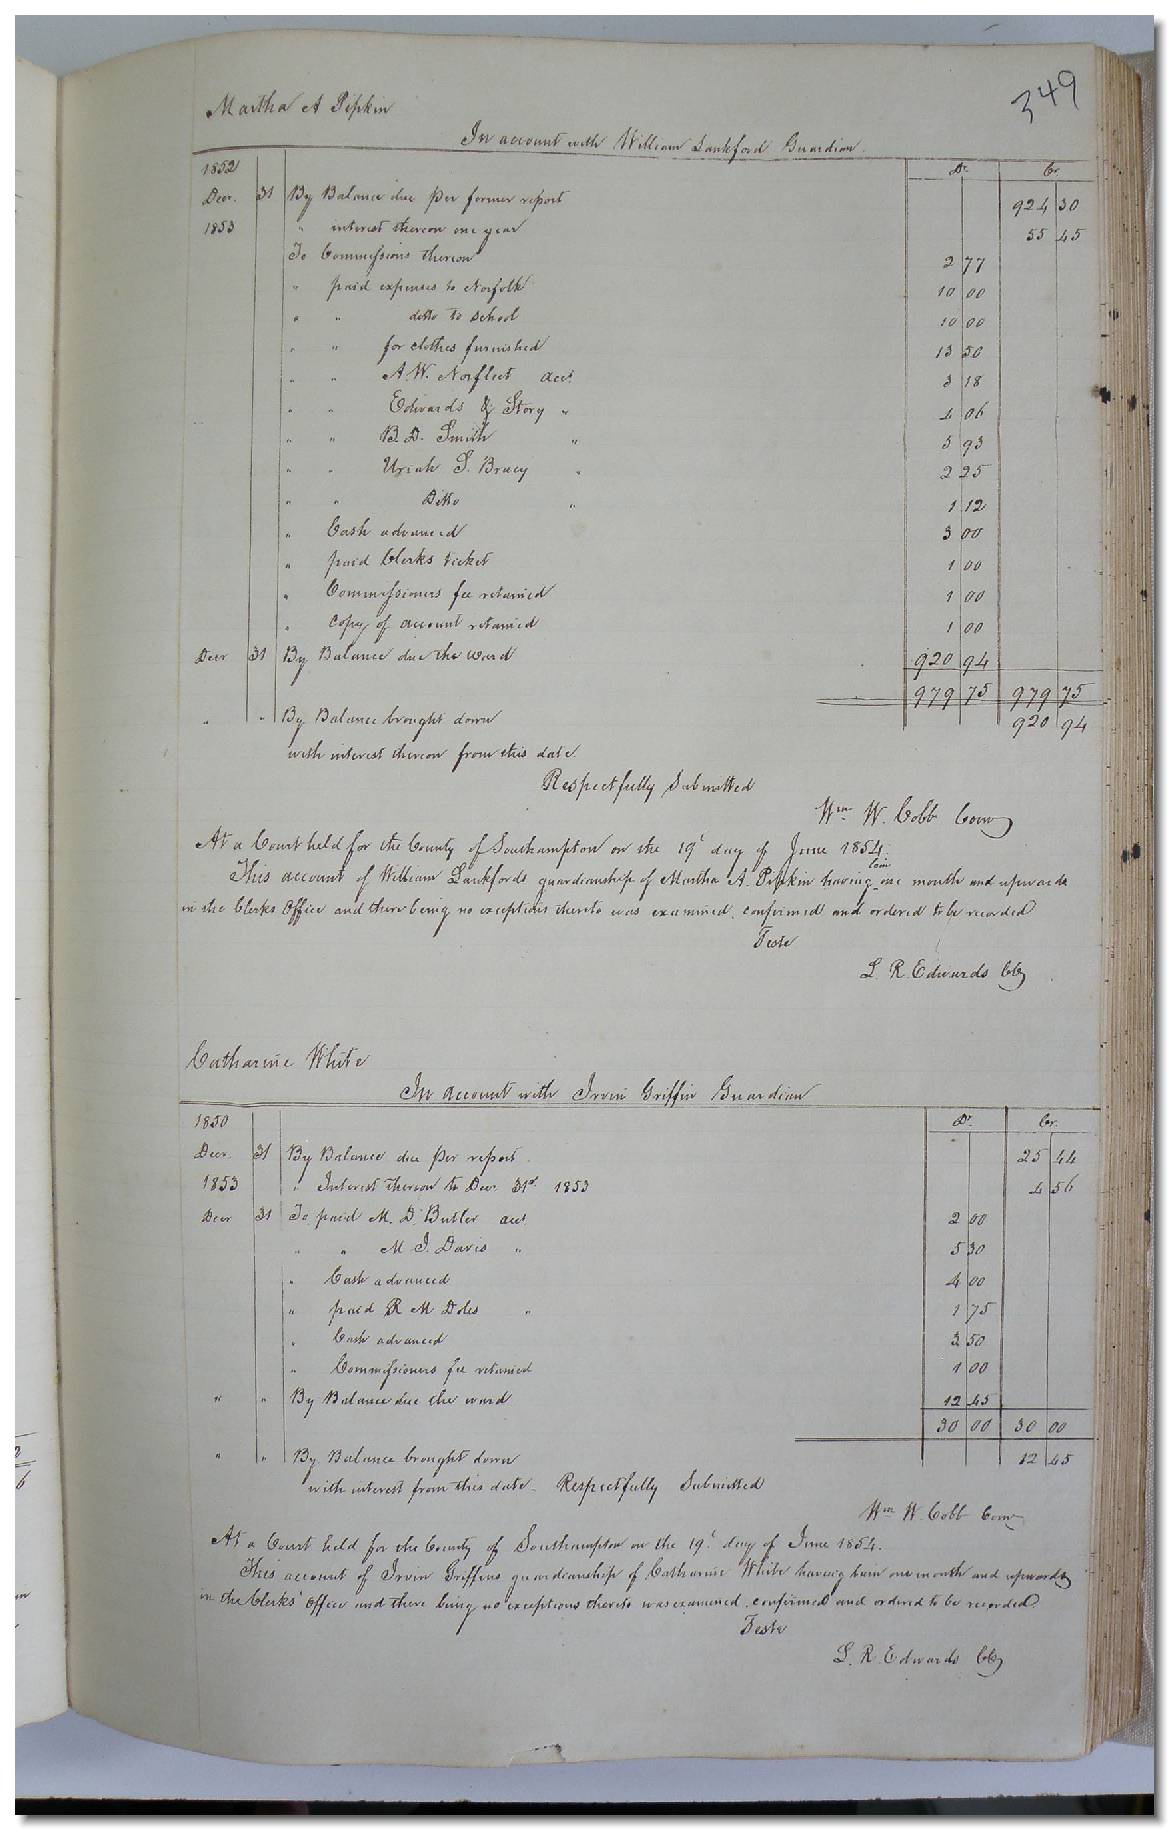 349
Martha A Pipkin
In account with William Lankford Guardian.
Dr. Cr.
1852
Decr. 31 By Balance due per former report 924 30
1853 " interest thereon one year 55 45
To Commissions thereon 2 77
" paid expenses to Norfolk 10 00
" " ditto to school 10 00
" " for clothes furnished 13 50
" " A. W. Norfleet acct. 3 18
" " Edwards & Story " 4 06
" " B. D. Smith " 5 93
" " Uriah S. Bracy " 2 25
" " Ditto " 1 12
" Cash advanced 3 00
" paid Clerks ticket 1 00
" Commissioners fee retained 1 00
" Copy of account retained 1 00
Decr 31 By Balance due the ward 920 94
979 75 979 75
" " By Balance brought down 920 94
with interest thereon from this date.
Respectfully Submitted
Wm W. Cobb Com
At a Court held for the County of Southampton on the 19t day of June 1854.
This account of William Lankfords guardianship of Martha A. Pipkin having lain one month and upwards
in the Clerks Office and there being no exceptions thereto was examined, confirmed and ordered to be recorded
Teste
L. R. Edwards Clk
Catharine White
In account with Irvin Griffin Guardian
Dr. Cr.
1850
Decr. 31 By Balance due per report. 25 44
1853 " Interest thereon to Decr 31st 1853 4 56
Decr 31 To paid M. D. Butler acct. 2 00
" " M. J. Davis " 5 30
" Cash advanced 4 00
" paid R M Doles " 1 75
" Cash advanced 3 50
" Commissioners fee retained 1 00
" " By Balance due the ward 12 45
30 00 30 00
" " By Balance brought down 12 45
with interest from this date. Respectfully Submitted
Wm W. Cobb Com
At a Court held for the County of Southampton on the 19t day of June 1854.
This account of Irvin Griffins guardianship of Catharine White having lain one month and upwards
in the Clerks' Office and there being no exceptions thereto was examined, confirmed and ordered to be recorded.
Teste
L. R. Edwards Clk